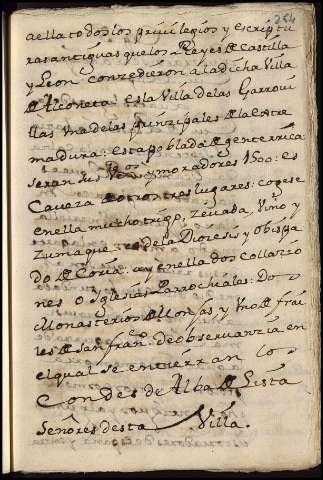 254
aella todos los priuilegios y escriptu
ras antiguas que los Reyes de Castilla
y Leon conzedieron a la dicha Villa
de Alconeta. es la Villa de las Garroui
llas vna de las principales de la Estre
madura: esta poblada de gente rrica
seran sus Vos y moradores 1500: es
Caueza de otros tres lugares: cogese
en ella mucho trigo, zeuada, Vino y
zumaque es de la Diocesis y obispa
do de Coria. ay en ella dos Collazio
nes o Iglesias Parrochiales: Do
Monasterios de Monjas y vno de frai
les de San franco. de obseruanzia en
el qual se entierran lo
Condes de Alba de Lista
Señores desta Villa.